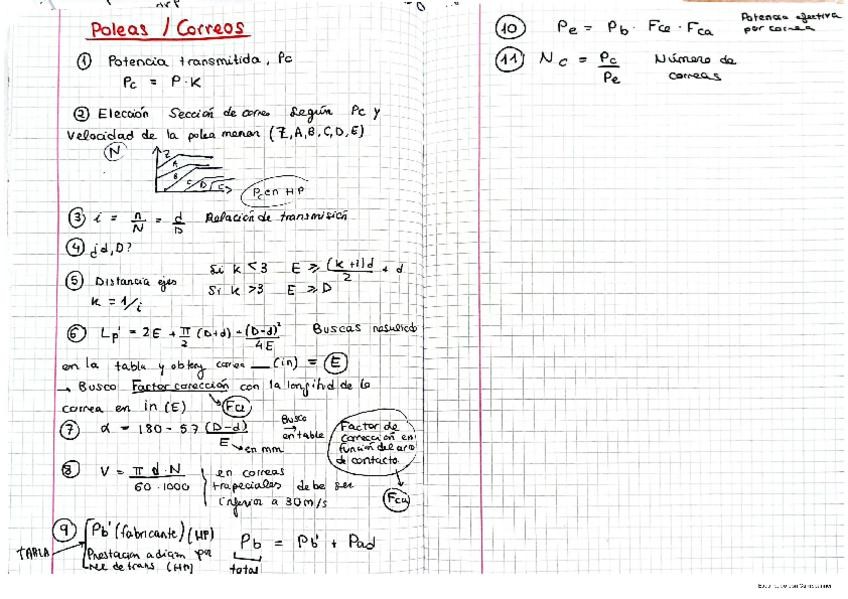 Poleas / Correas
① Potencia transmitida, Pc
Pc = P·K
② Elección Sección de correa según Pc y
Velocidad de la polea menor (Z,A,B,C,D,E)
N
Z
A
B
C D E
Pc en HP
③ i = n/N = d/D Relación de transmisión
④ ¿d,D?
⑤ Distancia ejes
K = 1/i
Si K < 3 E ≥ (K+1)d/2 + d
Si K >3 E ≥ D
⑥ Lp' = 2E + π/2 (D+d) + (D-d)²/4E Buscas resultado
en la tabla y obtienes correa __ (in) = E
→ Busco Factor corrección con la longitud de la
correa en in (E) Fcl
⑦ α = 180 - 57 (D-d)/E Busco en table
→ en mm
Factor de
corrección en
función del arco
de contacto.
Fcα
⑧ V = π d·N / 60·1000
en correas
trapeciales debe ser
inferior a 30 m/s
⑨ Pb' (fabricante) (HP)
TABLA
Prestación adicom por
rel de trans (HP)
Pb = Pb' + Pad
total
⑩ Pe = Pb · Fce · Fca Potencia efectiva
por correa
⑪ Nc = Pc/Pe Número de
correas
Escaneado con CamScanner